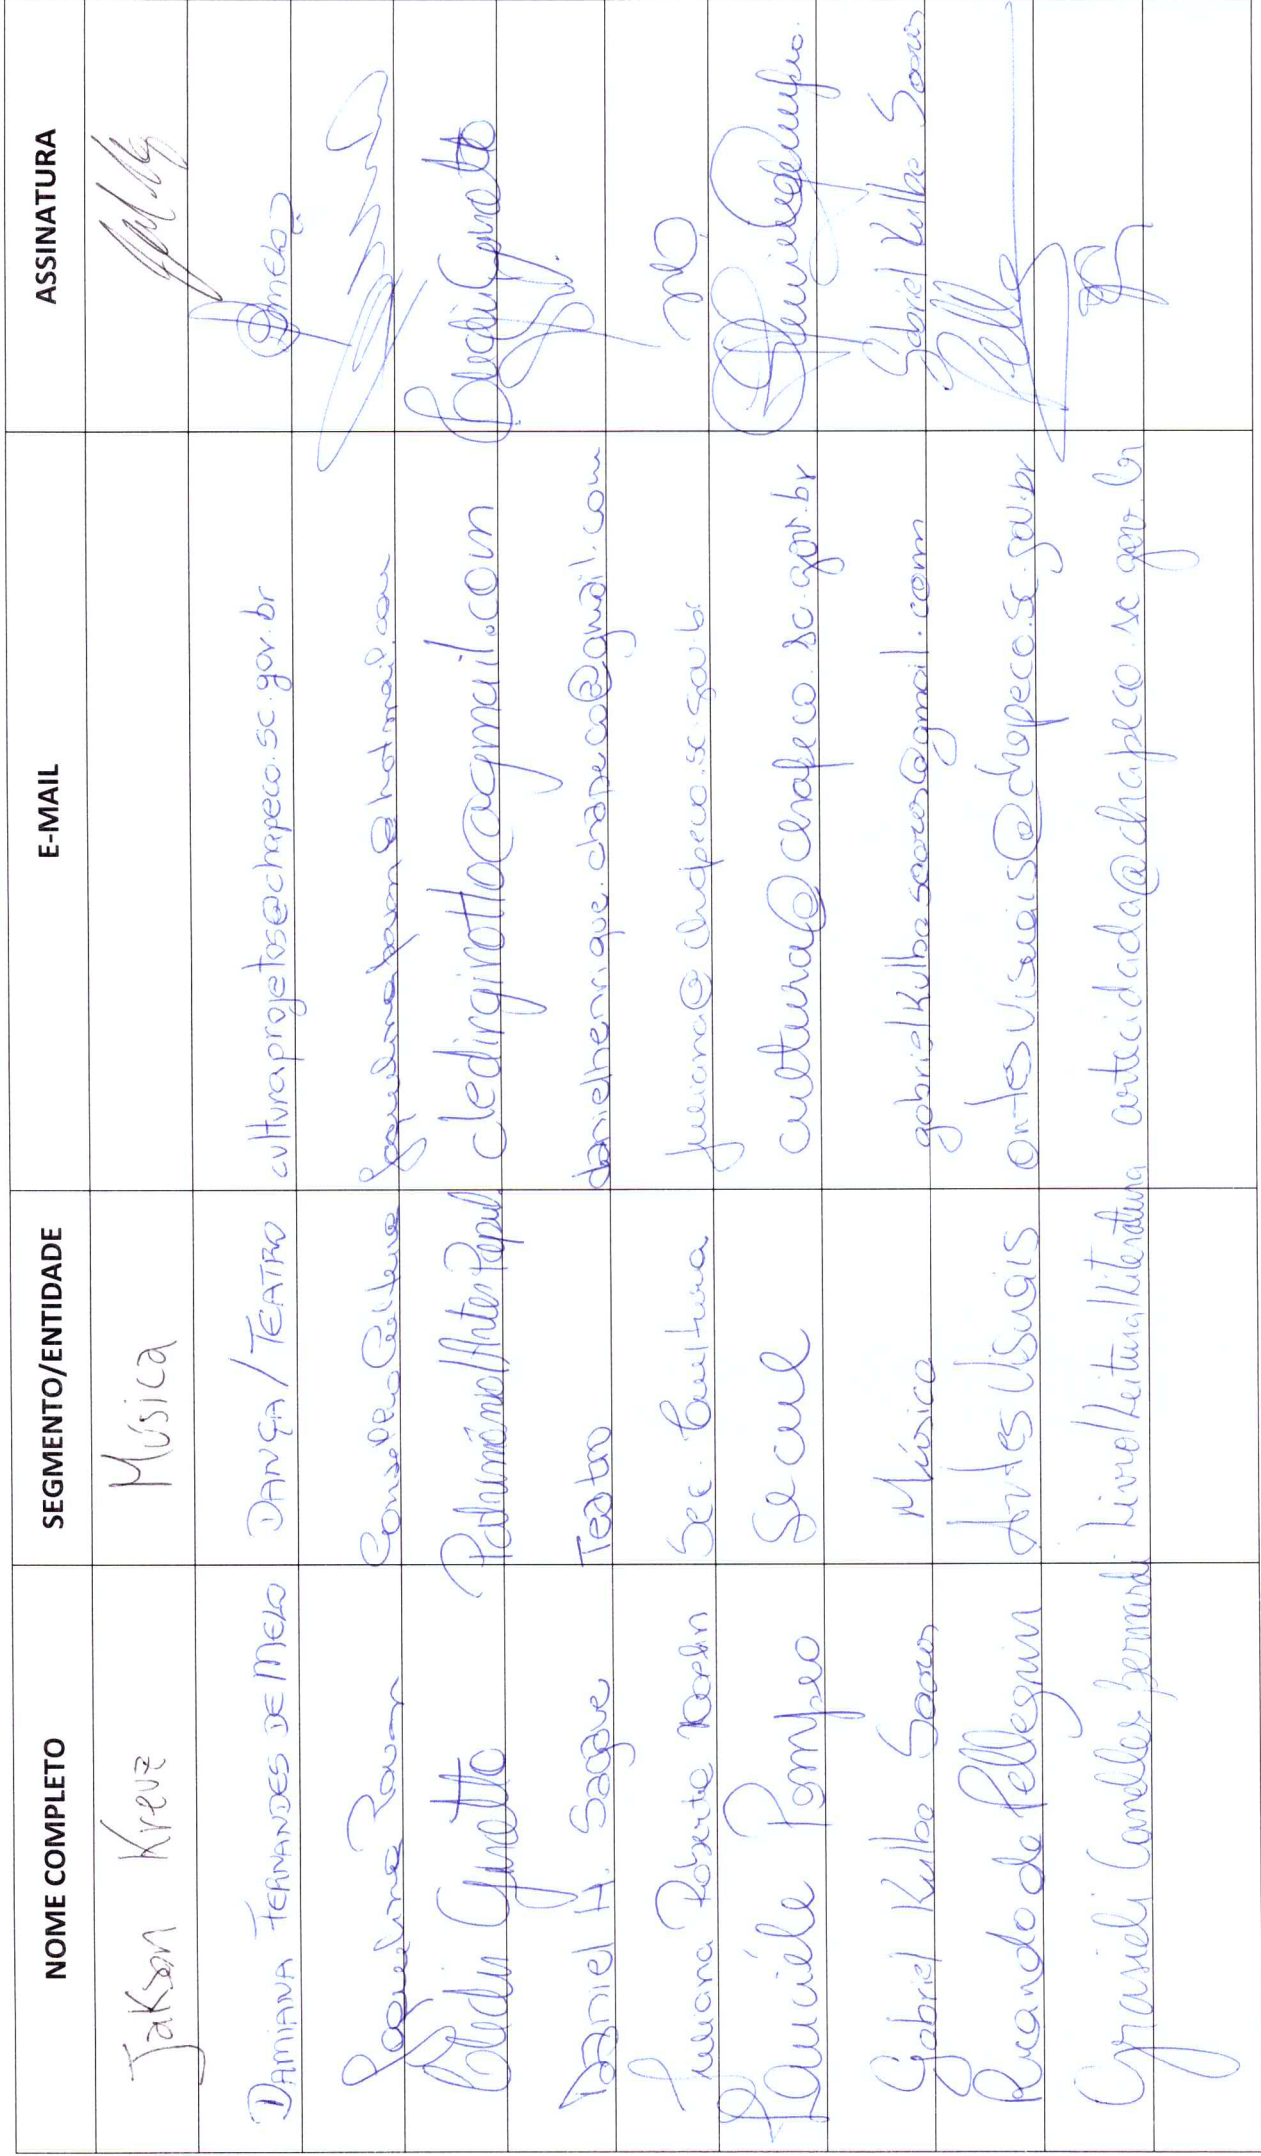 NOME COMPLETO SEGMENTO/ENTIDADE E-MAIL ASSINATURA
Jakson Kreuz Música
DAMIANA FERNANDES DE MELO DANÇA/TEATRO culturaprojetos@chapeco.sc.gov.br DMELO
Jaquelina Pavan Conselho Cultura
Cledir Girotto Patrimônio/Artes Popul cledirgirotto@gmail.com
Daniel H. Sazove Teatro danielhenrique.chapeco@gmail.com
Juliana Roberta Sec. Cultura juliana@chapeco.sc.gov.br
Franciéle Pompeo Secul cultura@chapeco.sc.gov.br
Gabriel Kulba Soares Música gabrielkulbasoares@gmail.com Gabriel Kulba Soares
Ricardo de Pellegrin Artes Visuais artesvisuais@chapeco.sc.gov.br Pelle
Grasieli Canelles Bernardi Livro/Leitura/Literatura artecidada@chapeco.sc.gov.br